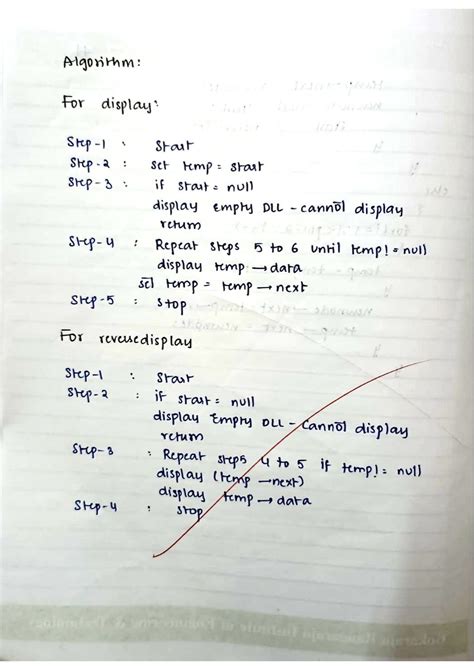 Algorithm:
For display:
Step-1 : Start
Step-2 : set temp = start
Step-3 : if start = null
display Empty DLL - cannot display
return
Step-4 : Repeat steps 5 to 6 until temp != null
display temp → data
set temp = temp → next
Step-5 : Stop
For reversedisplay
Step-1 : Start
Step-2 : if start = null
display Empty DLL - Cannot display
return
Step-3 : Repeat steps 4 to 5 if temp != null
display (temp → next)
display temp → data
Step-4 : Stop